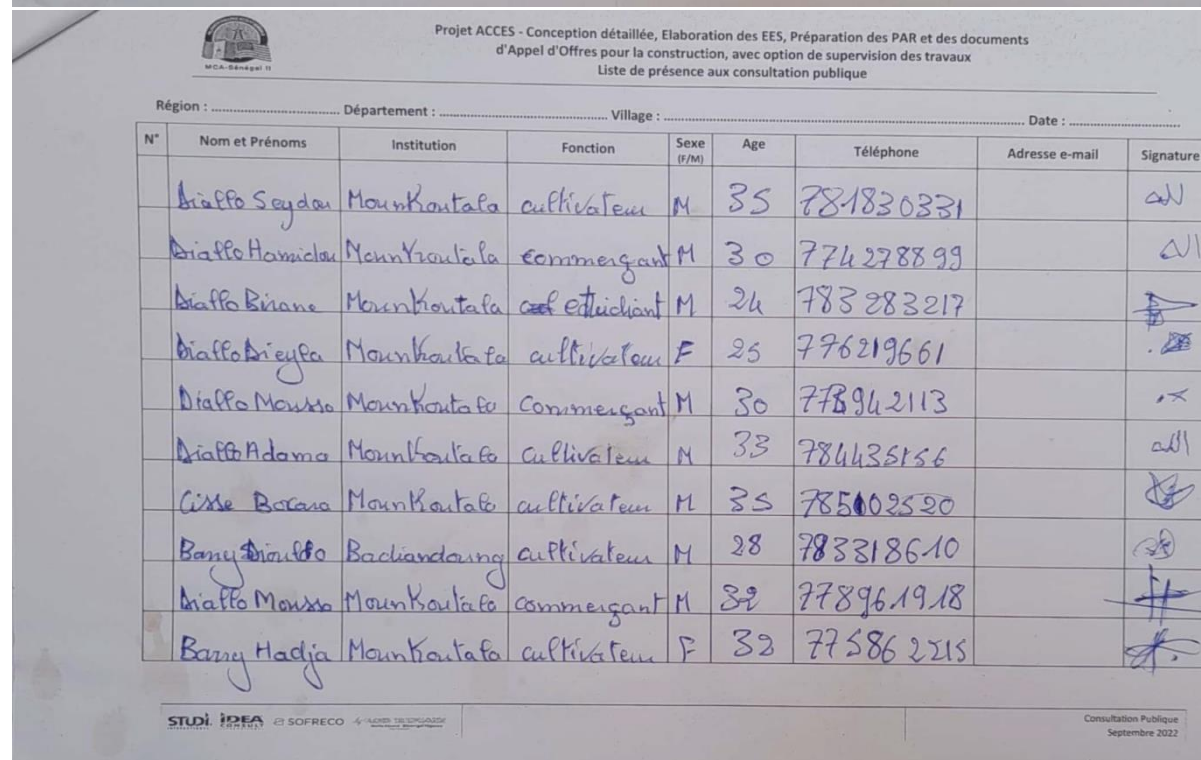 MCA-Sénégal II
Projet ACCES - Conception détaillée, Elaboration des EES, Préparation des PAR et des documents
d'Appel d'Offres pour la construction, avec option de supervision des travaux
Liste de présence aux consultation publique
Région : .................... Département : .................... Village : .................... Date : ....................
N° Nom et Prénoms Institution Fonction Sexe (F/M) Age Téléphone Adresse e-mail Signature
Diallo Seydou Mounkoutala cultivateur M 35 781830331
Diallo Hamidou Mounkoutala commerçant M 30 774278899
Diallo Binane Mounkoutala etuichiant M 24 783283217
Diallo Dieyla Mounkoutala cultivateur F 25 776219661
Diallo Mousso Mounkoutalo Commerçant M 30 942113
Diallo Adama Mounkoutalo cultivateur M 33 784435156
Cisse Mounkoutalo cultivateur M 35 785102520
Barry Badiandoung cultivateur M 28 783318610
Diallo Mousso Mounkoutalo commerçant M 32 778961918
Barry Hadja Mounkoutalo cultivateur F 32 775862215
STUDI INTERNATIONAL IDEA CONSULT SOFRECO
Consultation Publique
Septembre 2022